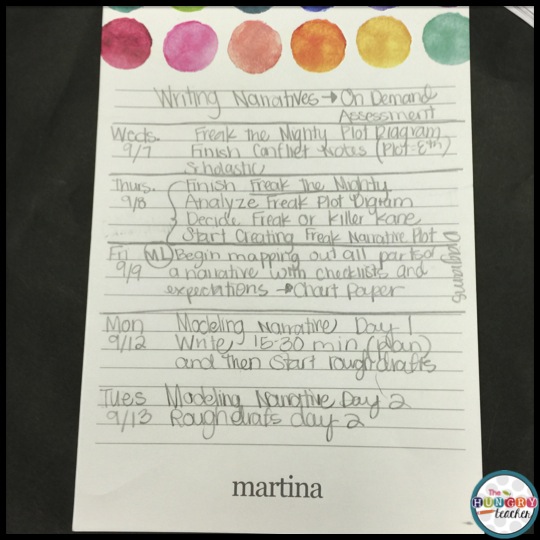 Writing Narratives → On Demand
Assessment
Weds. Freak the Mighty Plot Diagram
9/7 Finish Conflict Notes (Plot-8th)
Scholastic
Thurs. Finish Freak The Mighty
9/8 Analyze Freak Plot Digram
Decide Freak or Killer Kane
Start Creating Freak Narrative Plot
Diagrams
Fri ML Begin mapping out all parts of
9/9 a narrative with checklists and
expectations → Chart paper
Mon Modeling Narrative Day 1
9/12 Write 15-30 min (plan)
and then start rough drafts
Tues Modeling Narrative Day 2
9/13 Rough drafts day 2
martina
The
HUNGRY
teacher